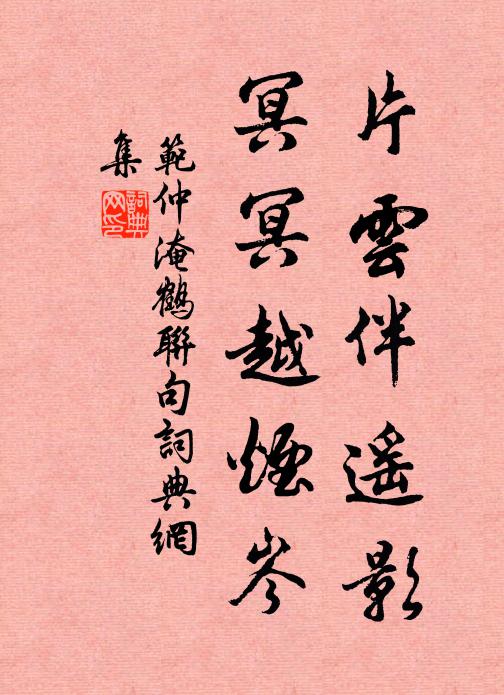 片雲伴遥影
冥冥越煙岑
範仲淹鶴聯句詞典網
集
詞典网印